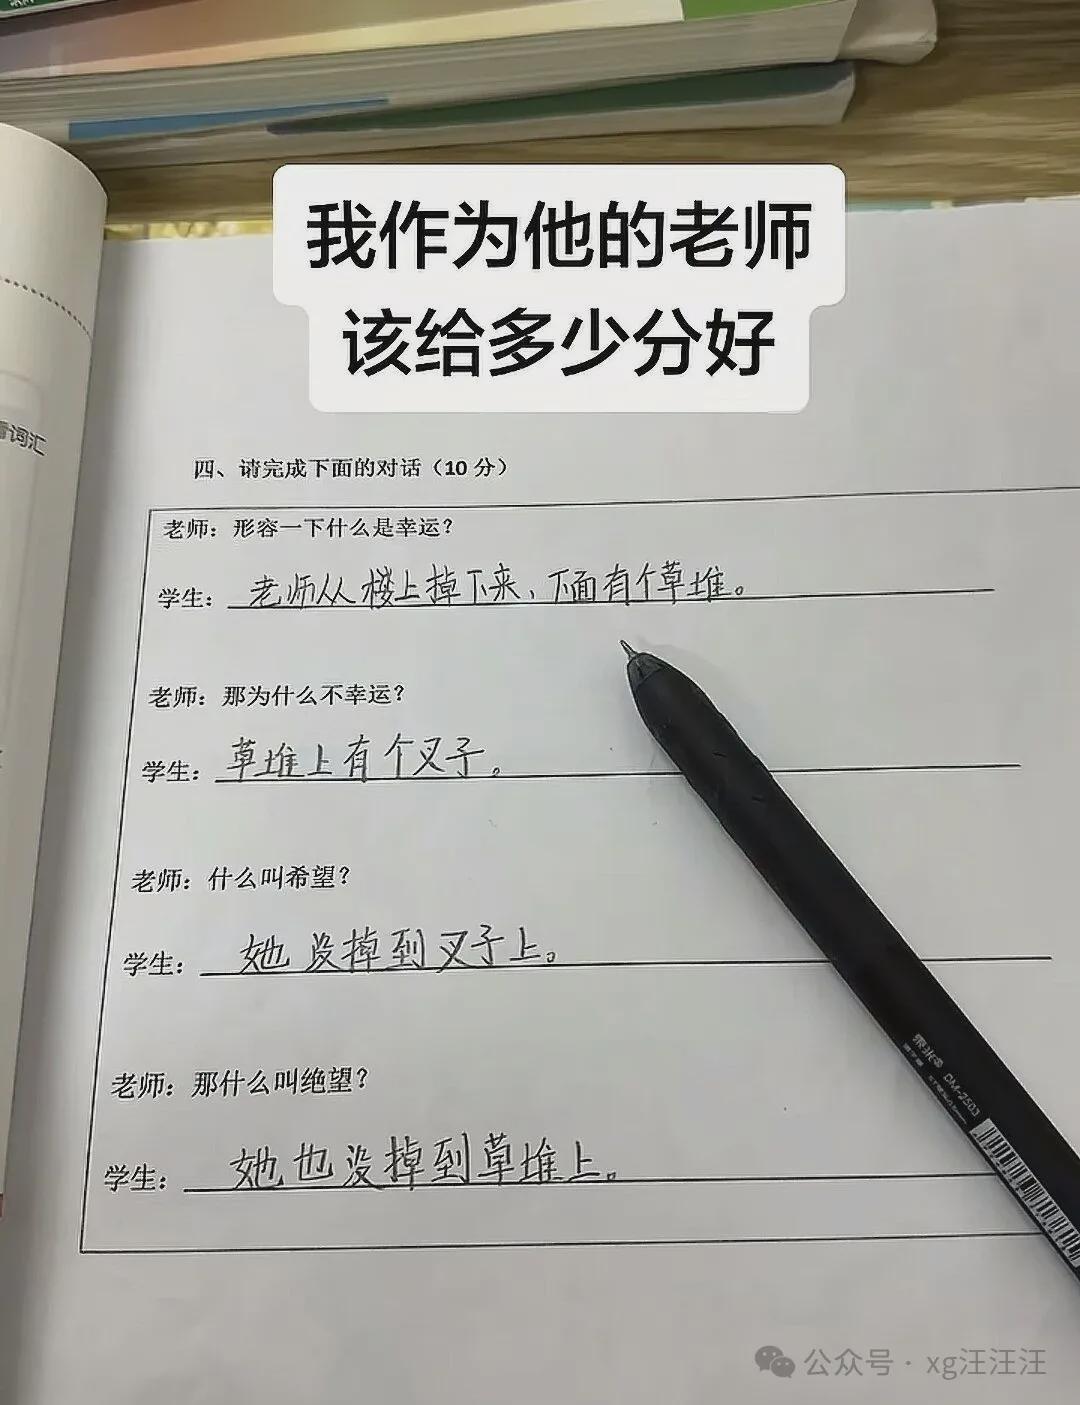 我作为他的老师
该给多少分好
词汇
四、请完成下面的对话（10 分）
老师：形容一下什么是幸运？
学生：老师从楼上掉下来、下面有个草堆。
老师：那为什么不幸运？
学生：草堆上有个叉子。
老师：什么叫希望？
学生：她没掉到叉子上。
老师：那什么叫绝望？
学生：她也没掉到草堆上。
DM-2503
公众号 · xg汪汪汪